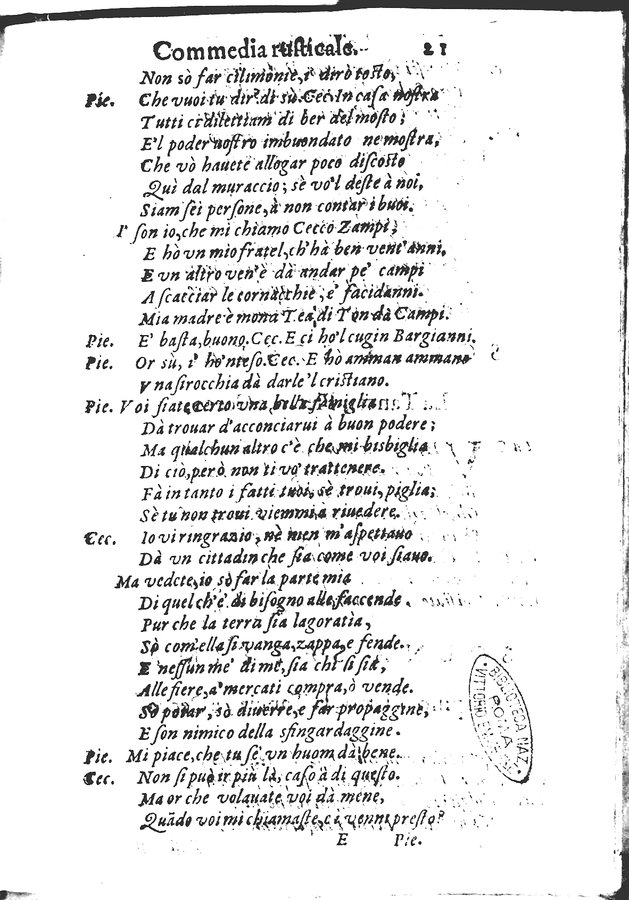 Commedia rusticale. 21
Non sò far cilimonie, i' dirò tosto,
Pie. Che vuoi tu dir? di sù. Cec. In casa nostra
Tutti ci dilettiam di ber del mosto;
E'l poder nostro imbuondato ne mostra,
Che vò hauete allogar poco discosto
Quì dal muraccio; sè vo'l deste à noi,
Siam sei persone, à non contar i buoi.
I' son io, che mi chiamo Cecco Zampi,
E hò vn mio fratel, ch'hà ben vent'anni,
E vn altro ven'è dà andar pe' campi
A scacciar le cornacchie, e' facidanni.
Mia madre è mona Tea, di Ton dà Campi.
Pie. E' basta, buono. Cec. E ci ho'l cugin Bargianni.
Pie. Or sù, i' hò 'nteso. Cec. E hò amman ammano
Vna sirocchia dà darle'l cristiano.
Pie. Voi siate certo vna bella famiglia
Dà trouar d'acconciarui à buon podere;
Ma qualchun altro c'è che mi bisbiglia
Di ciò, però non ti vo' trattenere.
Fà in tanto i fatti tuoi, sè troui, piglia;
Sè tu non troui viemmi à riuedere.
Cec. Io vi ringrazio, nè men m'aspettauo
Dà vn cittadin che sia come voi siauo.
Ma vedete, io sò far la parte mia
Di quel ch'è di bisogno alle faccende.
Pur che la terra sia lagoratia,
Sò com'ella si vanga, zappa, e fende.
E nessun me' di me, sia chi si sia,
Alle fiere, a' mercati compra, ò vende.
Sò potar, sò diuerre, e far propaggine,
E son nimico della sfingardaggine.
Pie. Mi piace, che tu se' vn huom dà bene.
Cec. Non si può ir più là, caso à di questo.
Ma or che volauate voi dà mene,
Quãdo voi mi chiamaste, ci venni presto?
E Pie.
BIBLIOTECA NAZ.
ROMA
VITTORIO EMANUELE